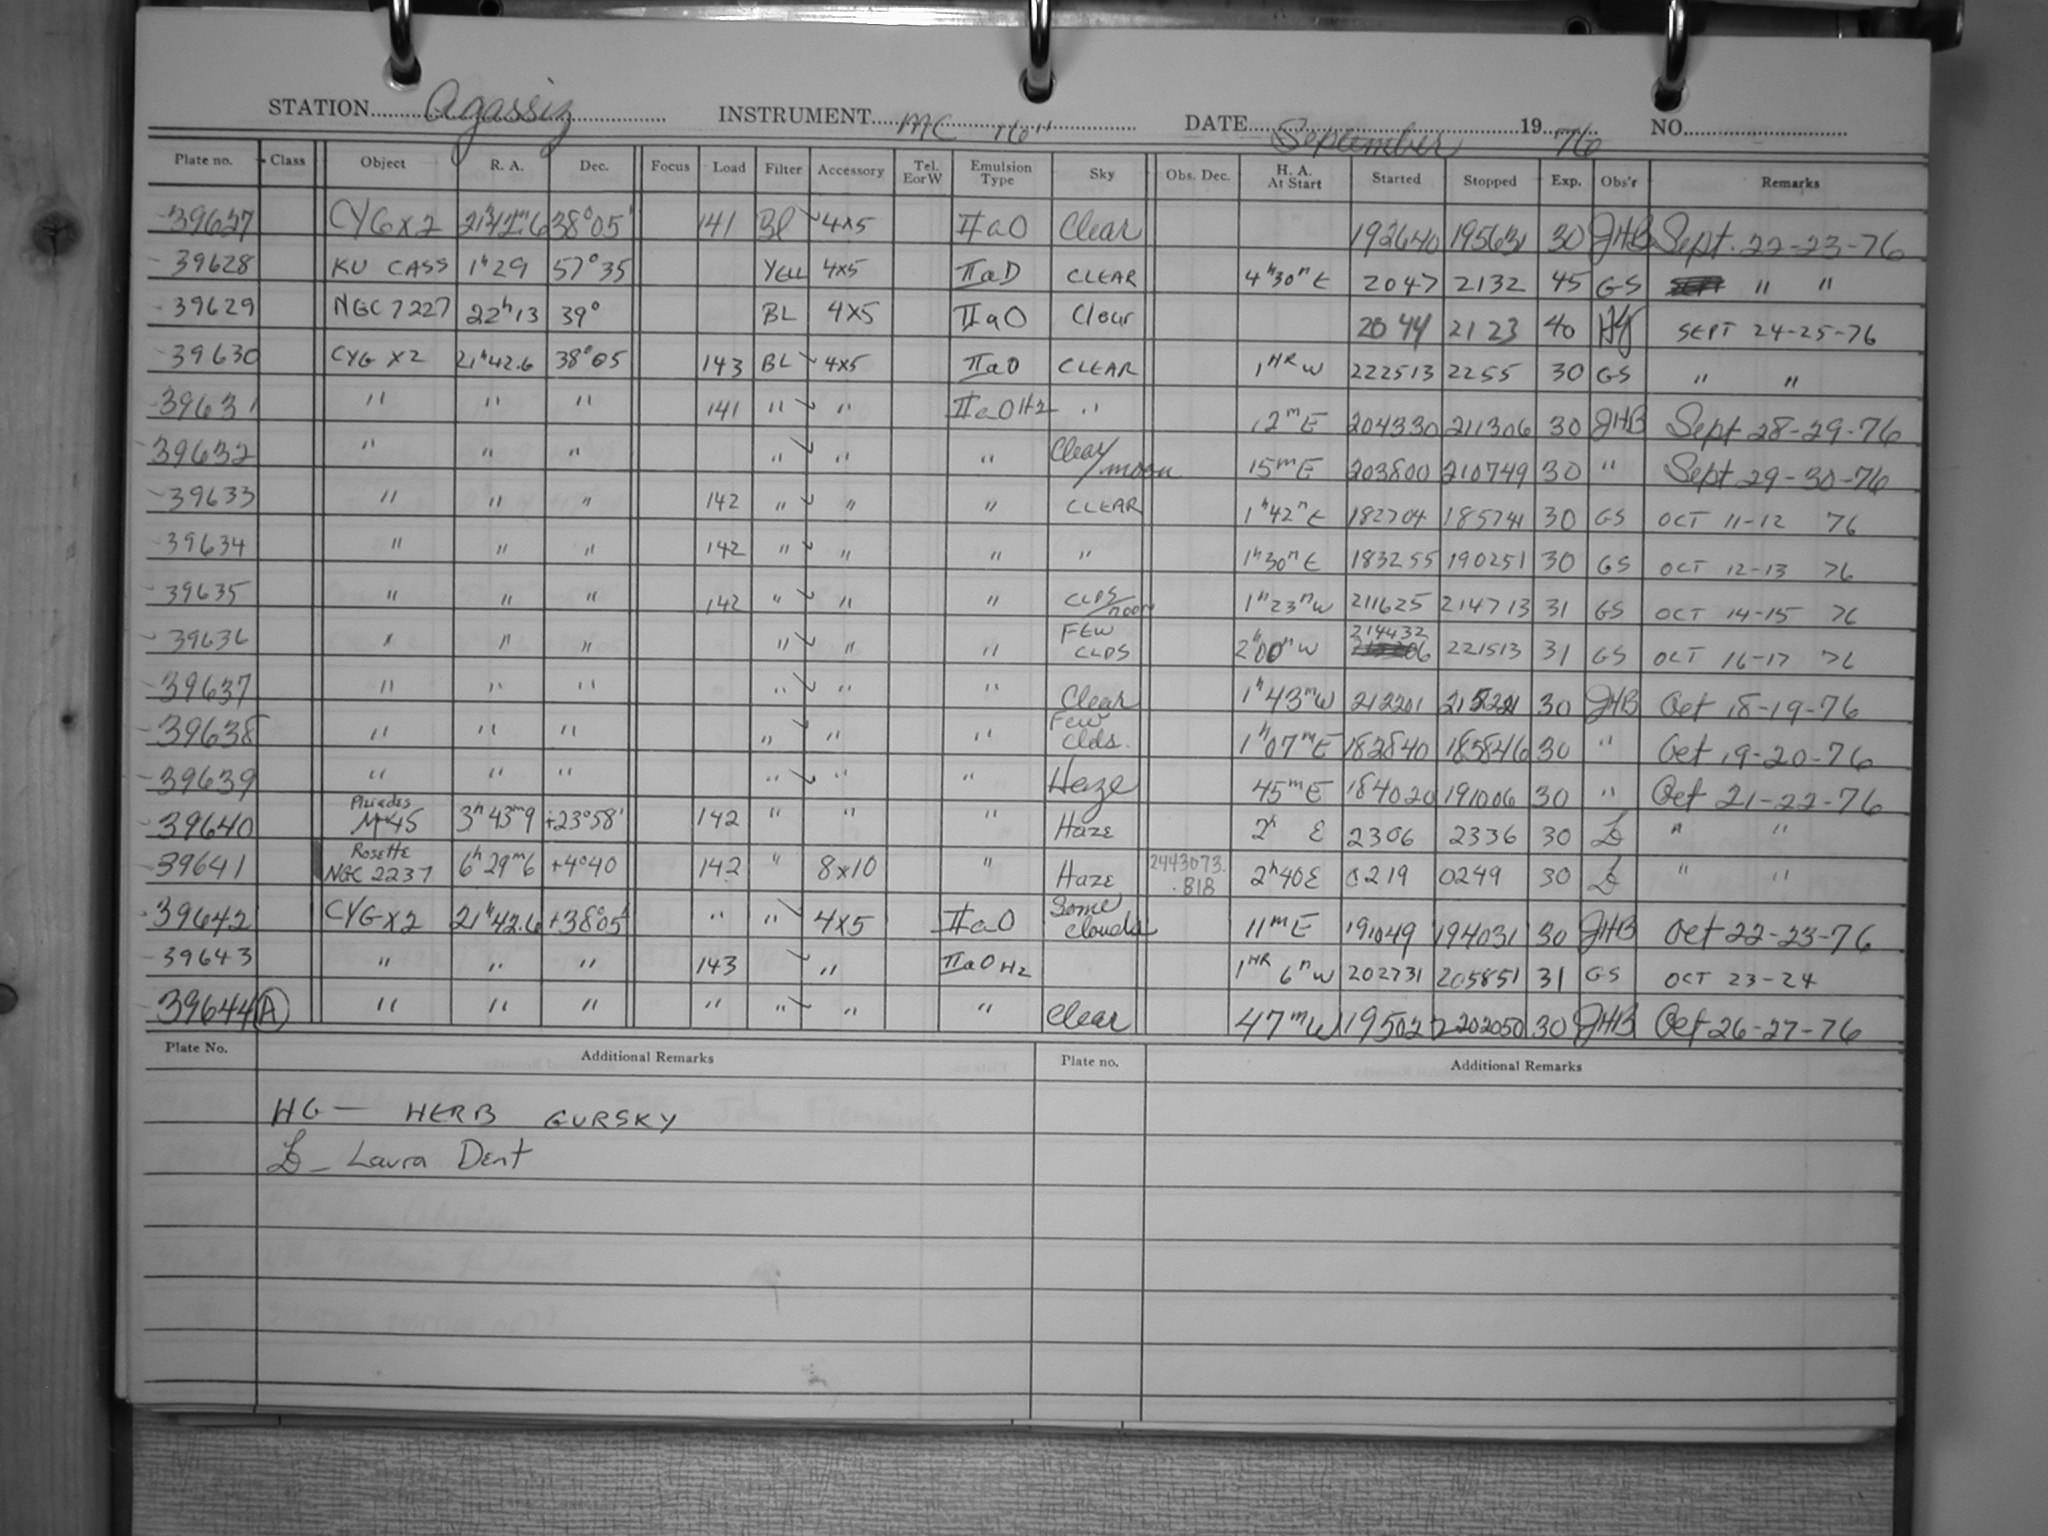 STATION Agassiz INSTRUMENT MC 16" DATE September 19 76 NO.
Plate no. Class Object R. A. Dec. Focus Load Filter Accessory Tel. E or W Emulsion Type Sky Obs. Dec. H. A. At Start Started Stopped Exp. Obs'r Remarks
39627 CYG X2 21h42m.6 38°05' 141 Bl 4x5 IIaO Clear 192640 195631 30 JHB Sept. 22-23-76
39628 KU CASS 1h29 57°35 YELL 4x5 IIaD CLEAR 4h30m E 2047 2132 45 GS " "
39629 NGC 7227 22h13 39° BL 4x5 IIaO Clear 2044 2123 40 HG SEPT 24-25-76
39630 CYG X2 21h42.6 38°05 143 BL 4x5 IIaO CLEAR 1HR W 222513 2255 30 GS " "
39631 " " " 141 " " IIaOH2 " 2mE 204330 211306 30 JHB Sept 28-29-76
39632 " " " " " " Clear/moon 15mE 203800 210749 30 " Sept 29-30-76
39633 " " " 142 " " " CLEAR 1h42m E 182704 185741 30 GS OCT 11-12 76
39634 " " " 142 " " " " 1h30m E 183255 190251 30 GS OCT 12-13 76
39635 " " " 142 " " " CLDS/moon 1h23mW 211625 214713 31 GS OCT 14-15 76
39636 " " " " " " FEW CLDS 2h00mW 214432 221513 31 GS OCT 16-17 76
39637 " " " " " " Clear 1h43mW 212201 30 JHB Oct 18-19-76
39638 " " " " " " Few Clds. 1h07mE 182840 185846 30 " Oct 19-20-76
39639 " " " " " " Haze 45mE 184020 191006 30 " Oct 21-22-76
39640 Pleiades M45 3h43m9 +23°58' 142 " " " Haze 2h E 2306 2336 30 LD " "
39641 Rosette NGC 2237 6h29m6 +4°40 142 " 8x10 " Haze 2443073.818 2h40E 0219 0249 30 LD " "
39642 CYG X2 21h42.6 +38°05' " " 4x5 IIaO Some clouds 11mE 191049 194031 30 JHB Oct 22-23-76
39643 " " " 143 " IIaOH2 1HR 6mW 202731 205851 31 GS OCT 23-24
39644 A " " " " " " " Clear 47mW 195027 202050 30 JHB Oct 26-27-76
Plate No. Additional Remarks Plate no. Additional Remarks
HG — HERB GURSKY
LD — Laura Dent